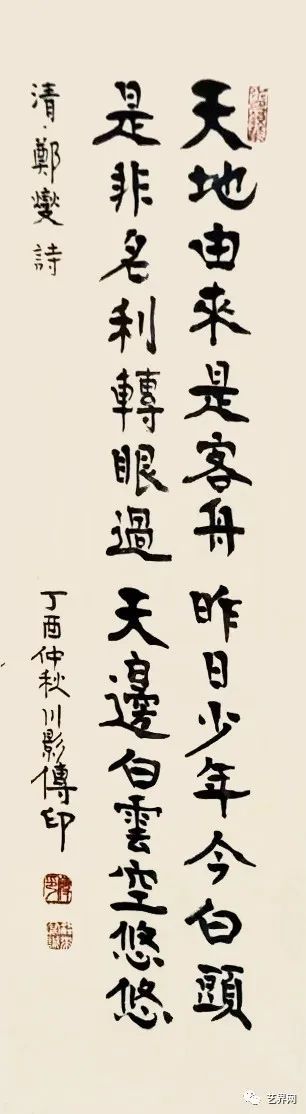 天地由來是客舟昨日少年今白頭
是非名利轉眼過天邊白雲空悠悠
清·鄭燮詩
丁酉仲秋川影傳印
艺界网